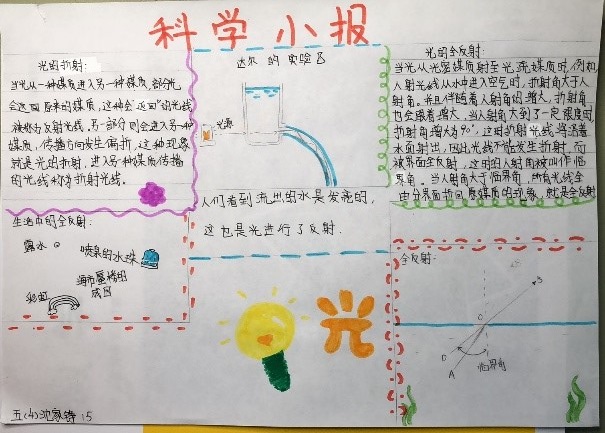 科学小报
光的折射:
当光从一种媒质进入另一种媒质,部分光
会返回原来的媒质,这种会"返回"的光线
被称为反射光线,另一部分则会进入另一种
媒质,传播方向发生偏折,这种现象
就是光的折射,进入另一种媒质传播
的光线称为折射光线。
达尔的实验
光源
人们看到流出的水是发亮的,
这也是光进行了反射.
光的全反射:
当光从光密媒质射至光疏媒质时,例如
入射光线从水中进入空气时,折射角大于入
射角。并且伴随着入射角的增大,折射角
也会跟着增大,当入射角大到了一定限度时
折射角增大为90°,这时折射光线将沿着
水面射出,因此光线不能发生折射,而
被界面全反射,这时的入射角被叫作临
界角。当入射角大于临界角,所有光线全
由分界面折回原媒质的现象,就是全反射
生活中的全反射:
露水
喷泉的水珠
海市蜃楼的
成因
彩虹
光
全反射:
S
O
临界角
A
五(4)沈家